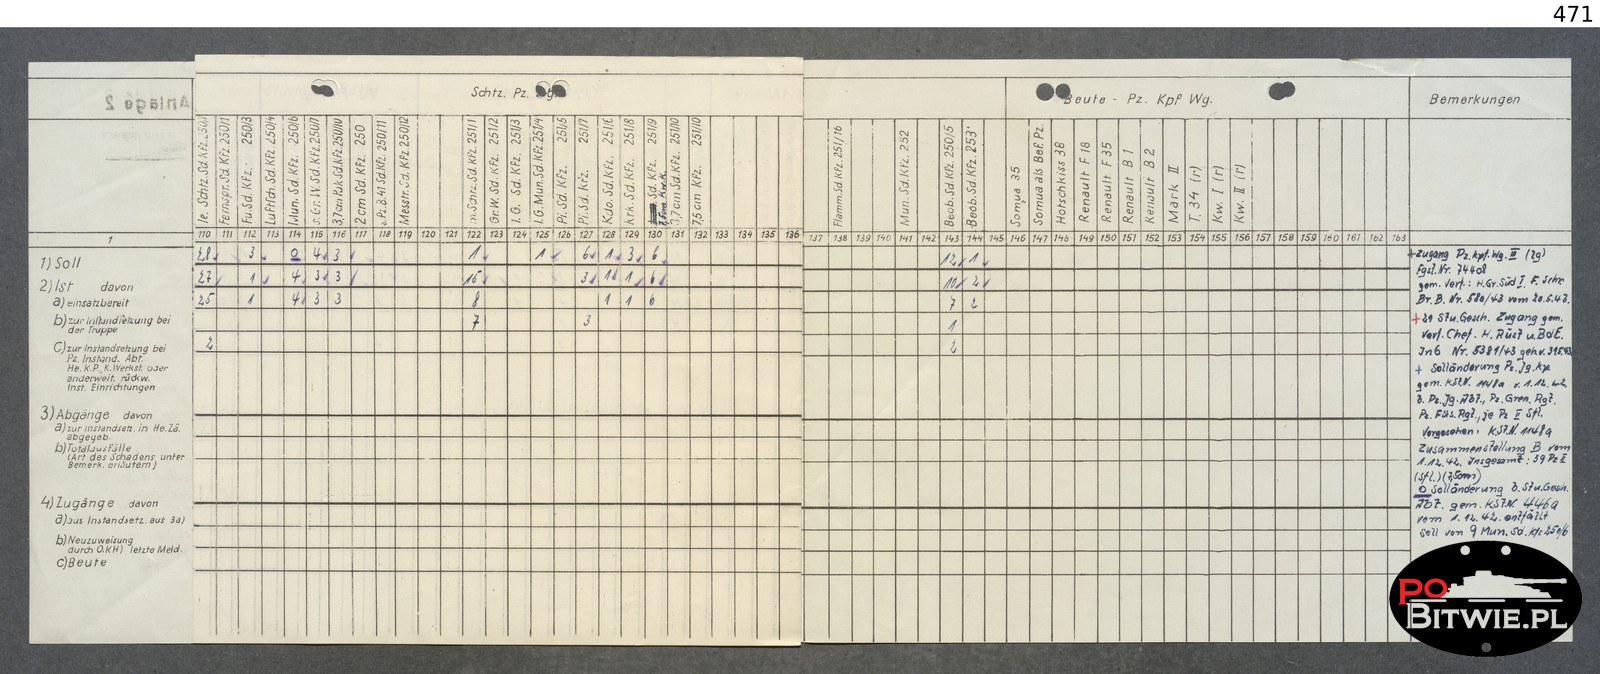 471
Anlage 2
Schtz. Pz. Wg.
Beute - Pz. Kpf Wg.
Bemerkungen
le. Schtz. Sd. Kfz. 250/1
Fernspr. Sd. Kfz. 250/1
Fu. Sd. Kfz. 250/3
Luftfch. Sd. Kfz. 250/4
Mun. Sd. Kfz. 250/6
s. Gr. W. Sd. Kfz. 250/7
3,7cm Pak Sd. Kfz. 250/10
2 cm Sd. Kfz. 250
s. Pz. B. 41 Sd. Kfz. 250/11
Messtr. Sd. Kfz. 250/12
m. Schtz. Sd. Kfz. 251/1
Gr. W. Sd. Kfz. 251/2
I. G. Sd. Kfz. 251/3
I. G. Mun. Sd. Kfz. 251/4
Pi. Sd. Kfz. 251/5
Pi. Sd. Kfz. 251/7
Kdo. Sd. Kfz. 251/6
Krk. Sd. Kfz. 251/8
Sd. Kfz. 251/9
7,5cm K.w.K.
3,7 cm Sd. Kfz. 251/10
7,5 cm Kfz. 251/10
Flamm. Sd. Kfz. 251/16
Mun. Sd. Kfz. 252
Beob. Sd. Kfz. 250/5
Beob. Sd. Kfz. 253
Somua 35
Somua als Bef. Pz.
Hotschkiss 38
Renault F 18
Renault F 35
Renault B 1
Renault B 2
Mark II
T. 34 (r)
Kw. I (r)
Kw. II (r)
1 110 111 112 113 114 115 116 117 118 119 120 121 122 123 124 125 126 127 128 129 130 131 132 133 134 135 136 137 138 139 140 141 142 143 144 145 146 147 148 149 150 151 152 153 154 155 156 157 158 159 160 161 162 163
1) Soll 28 3 0 4 3 1 1 6 1 3 6 12 1
2) Ist davon 27 1 4 3 3 15 3 1 1 6 10 2
a) einsatzbereit 25 1 4 3 3 8 1 1 6 7 2
b) zur Instandsetzung bei 7 3 1
der Truppe
c) zur Instandsetzung bei 2 2
Pz. Instand. Abt.
He. K.P., K. Werkst. oder
anderweit. rückw.
Inst. Einrichtungen
3) Abgänge davon
a) zur Instandset. in He. Za.
abgegeb.
b) Totalausfälle
(Art des Schadens unter
Bemerk. erläutern)
4) Zugänge davon
a) aus Instandsetz. aus 3a)
b) Neuzuweisung
durch O.K.H.) letzte Meld.
c) Beute
+ Zugang Pz. Kpf. Wg. III (lg)
Fgst. Nr. 74408
gem. Verf.: H. Gr. Süd I. F. Schr.
Br. B. Nr. 580/43 vom 20.6.43.
+ 21 Stu. Gesch. Zugang gem.
Verf. Chef. H. Rüst u. BdE.
Jn6 Nr. 5381/43 geh. v. 31.5.43
+ Solländerung Pz. Jg. Kp
gem. K.St.N. 1148a v. 1.12.42
d. Pz. Jg. Abt., Pz. Gren. Rgt.
Pz. Füs. Rgt., je Pz II Sfl.
Vorgesehen: K.St.N. 1148a
Zusammenstellung B vom
1.12.42. Insgesamt: 39 Pz II
(Sfl.) (7,5cm)
0 Solländerung d. Stu. Gesch.
Abt. gem. K.St.N. 446a
vom 1.12.42. entfällt
Soll von 9 Mun. Sd. Kfz 250/6
PO
BITWIE.PL